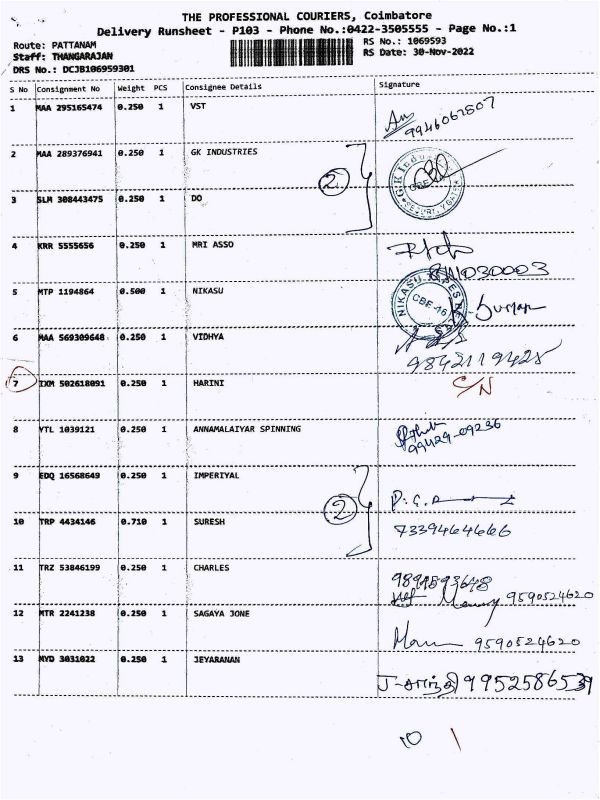 THE PROFESSIONAL COURIERS, Coimbatore
Delivery Runsheet - P103 - Phone No.:0422-3505555 - Page No.:1
Route: PATTANAM
RS No.: 1069593
Staff: THANGARAJAN
RS Date: 30-Nov-2022
DRS No.: DCJB106959301
S No Consignment No Weight PCS Consignee Details Signature
1 MAA 295165474 0.250 1 VST
9946067807
2 MAA 289376941 0.250 1 GK INDUSTRIES
2
3 SLM 308443475 0.250 1 DO
4 KRR 5555656 0.250 1 MRI ASSO
5 MTP 1194864 0.500 1 NIKASU
NIKASU
CBE-16
Suman
6 MAA 569309648 0.250 1 VIDHYA
9842119428
7 IXM 502618091 0.250 1 HARINI C/N
8 VTL 1039121 0.250 1 ANNAMALAIYAR SPINNING
99429-09236
9 EDQ 16568649 0.250 1 IMPERIYAL
2
10 TRP 4434146 0.710 1 SURESH 7339464666
11 TRZ 53846199 0.250 1 CHARLES
9590524620
12 MTR 2241238 0.250 1 SAGAYA JONE
9590524620
13 MYD 3031022 0.250 1 JEYARANAN
J-சாந்தி 9952586539
10 1